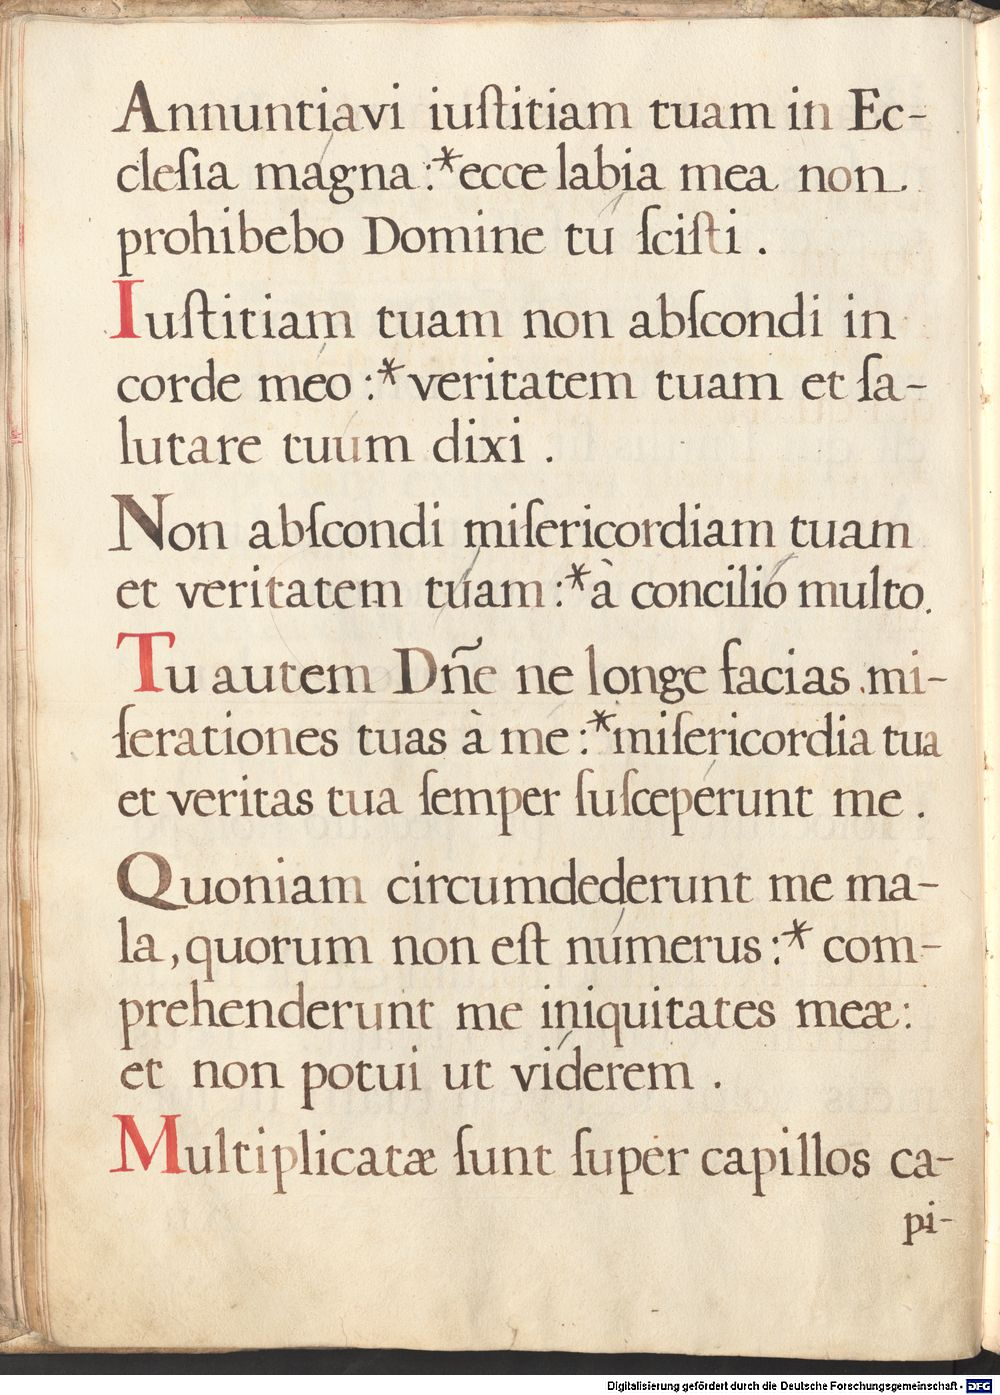 Annuntiavi iuſtitiam tuam in Ec-
cleſia magna :*ecce labia mea non
prohibebo Domine tu ſciſti .
Iuſtitiam tuam non abſcondi in
corde méo :*veritatem tuam et ſa-
lutare tuúm dixi .
Non abſcondi miſericordiam tuam
et veritatem túam :*à concilió multo.
Tu autem Dn̄e ne longe facias mi-
ſerationes tuas à mé :*miſericordia tua
et veritas tua ſemper ſuſcepérunt me .
Quoniam circumdederunt me ma-
la, quorum non eſt númerus :* com-
prehenderunt me iniquitates meæ :
et non potui ut víderem .
Multiplicatæ ſunt ſuper capillos ca-
pi-
Digitalisierung gefördert durch die Deutsche Forschungsgemeinschaft - DFG